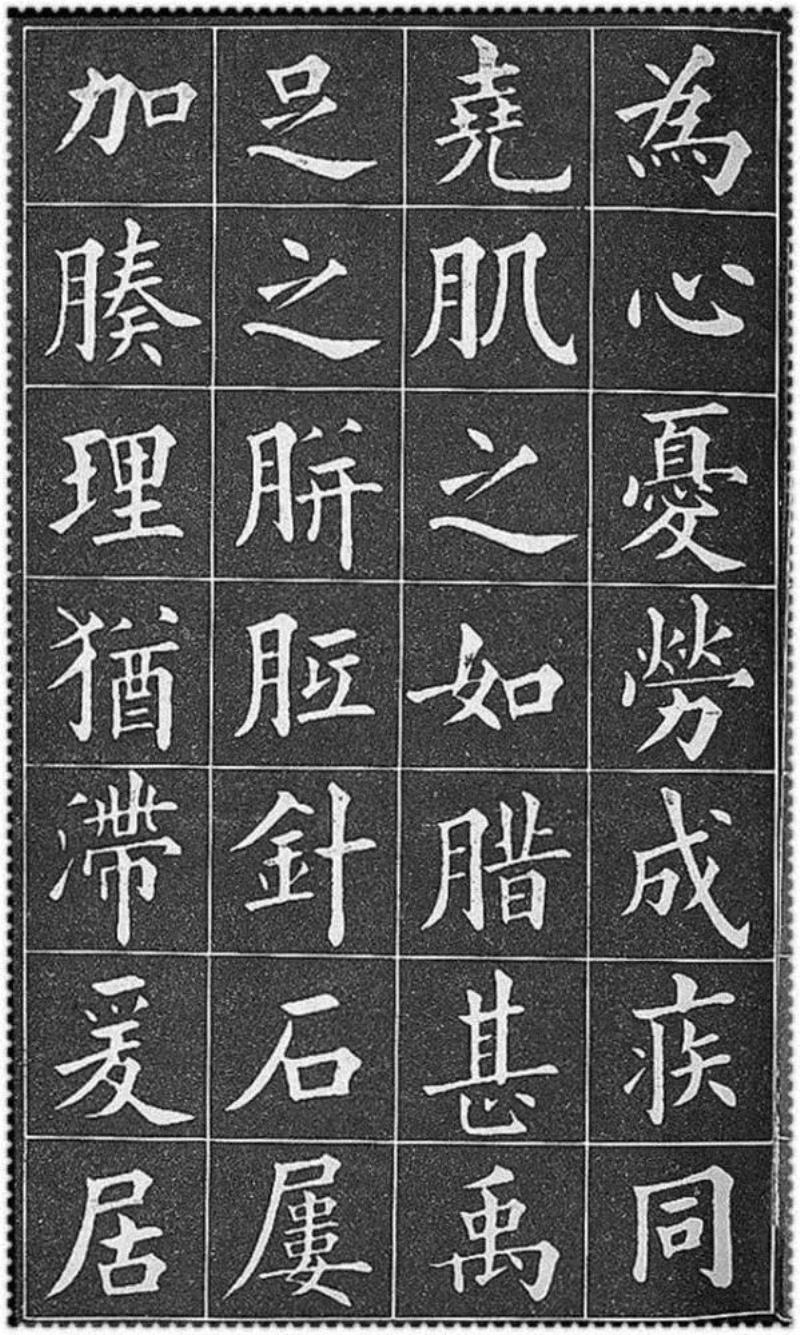 為心憂勞成疾同
堯肌之如腊甚禹
足之胼胝針石屢
加腠理猶滯爰居